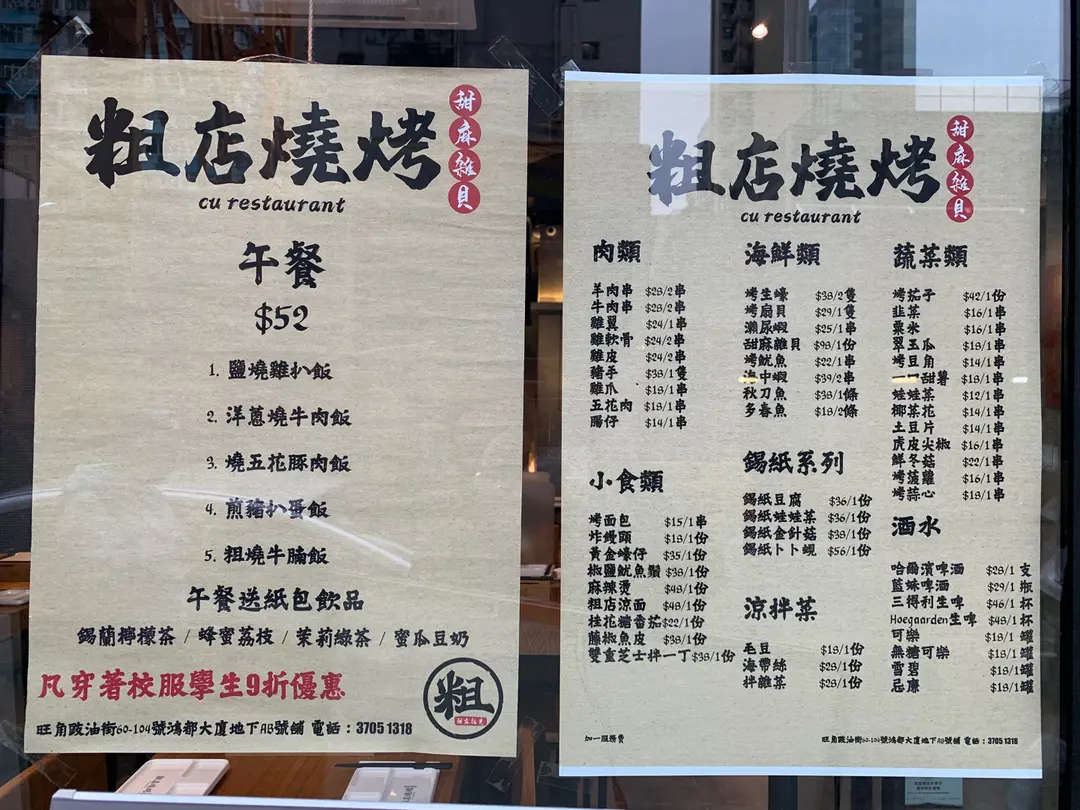 粗店燒烤
甜麻雜貝
cu restaurant
午餐
$52
1. 鹽燒雞扒飯
2. 洋蔥燒牛肉飯
3. 燒五花豚肉飯
4. 煎豬扒蛋飯
5. 粗燒牛腩飯
午餐送紙包飲品
錫蘭檸檬茶 / 蜂蜜荔枝 / 茉莉綠茶 / 蜜瓜豆奶
凡穿著校服學生9折優惠
粗
旺角豉油街60-104號鴻都大廈地下AB號舖 電話：3705 1318
粗店燒烤
甜麻雜貝
cu restaurant
肉類
羊肉串 $28/2串
牛肉串 $28/2串
雞翼 $24/1串
雞軟骨 $24/2串
雞皮 $24/2串
豬手 $38/1隻
雞爪 $18/1串
五花肉 $18/1串
腸仔 $14/1串
小食類
烤面包 $15/1串
炸饅頭 $18/1份
黃金蠔仔 $35/1份
椒鹽魷魚鬚 $38/1份
麻辣燙 $48/1份
粗店涼面 $48/1份
桂花糖番茄 $22/1份
藤椒魚皮 $38/1份
雙重芝士拌一丁 $38/1份
加一服務費
海鮮類
烤生蠔 $38/2隻
烤扇貝 $29/1隻
瀨尿蝦 $25/1串
甜麻雜貝 $98/1份
烤魷魚 $22/1串
海中蝦 $39/2串
秋刀魚 $38/1條
多春魚 $18/2條
錫紙系列
錫紙豆腐 $36/1份
錫紙娃娃菜 $36/1份
錫紙金針菇 $38/1份
錫紙卜卜蜆 $56/1份
涼拌菜
毛豆 $18/1份
海帶絲 $28/1份
拌雜菜 $28/1份
蔬菜類
烤茄子 $42/1份
韭菜 $16/1串
粟米 $16/1串
翠玉瓜 $18/1串
烤豆角 $14/1串
一口甜薯 $18/1串
娃娃菜 $12/1串
椰菜花 $14/1串
土豆片 $14/1串
虎皮尖椒 $16/1串
鮮冬菇 $22/1串
烤菠蘿 $16/1串
烤蒜心 $18/1串
酒水
哈爾濱啤酒 $28/1支
藍妹啤酒 $29/1瓶
三得利生啤 $46/1杯
Hoegaarden生啤 $48/1杯
可樂 $18/1罐
無糖可樂 $18/1罐
雪碧 $18/1罐
忌廉 $18/1罐
旺角豉油街60-104號鴻都大廈地下AB號舖 電話：3705 1318